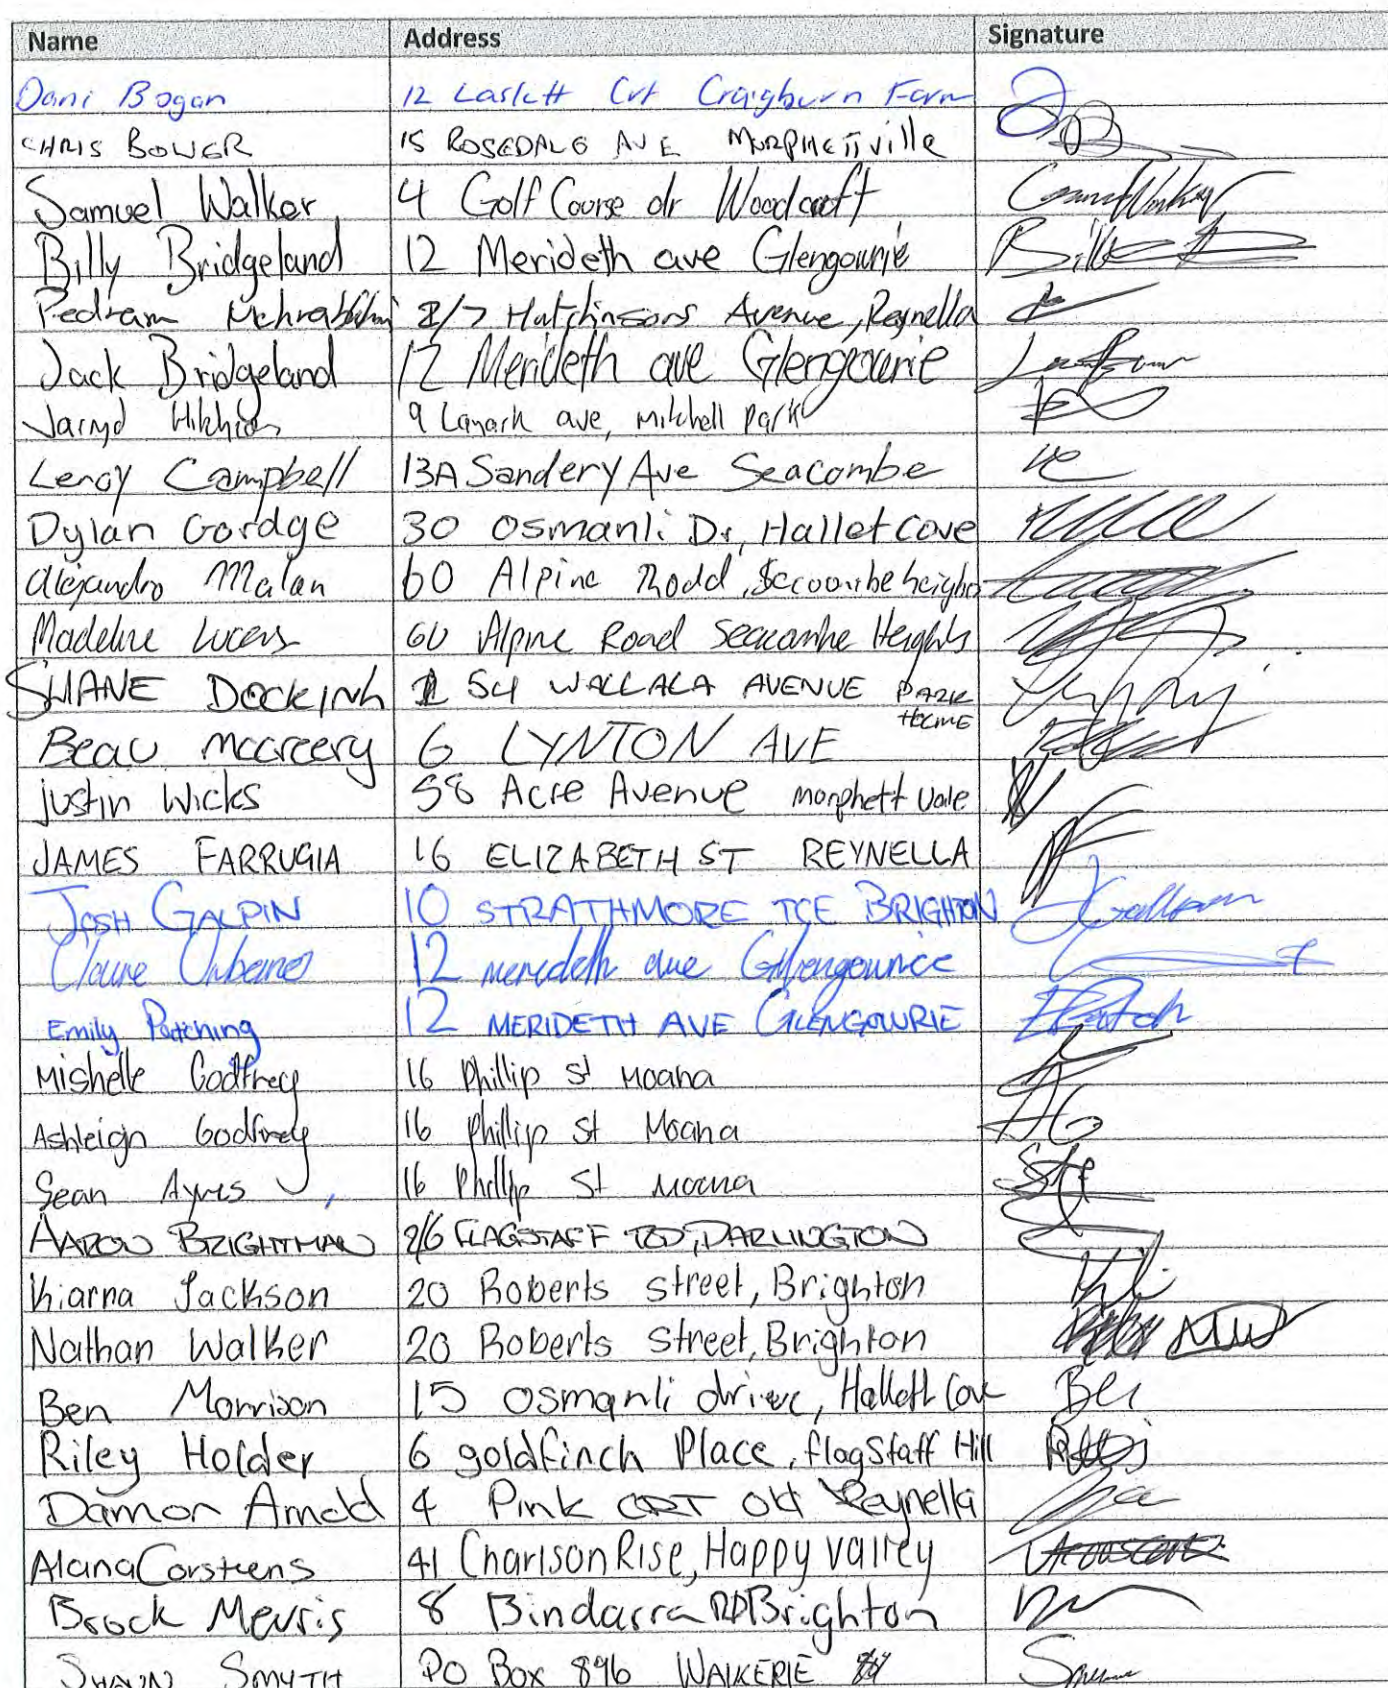 Name Address Signature
Dani Bogan 12 Laslett Crt Craigburn Farm
CHRIS BOWER 15 ROSEDALE AVE MORPHETTVille
Samuel Walker 4 Golf Course dr Woodcroft
Billy Bridgeland 12 Merideth ave Glengowrie
Pedram 2/7 Hutchinsons Avenue, Reynella
Jack Bridgeland 12 Merideth ave Glengowrie
Jarryd 9 Lanark ave, Mitchell Park
Leroy Campbell 13A Sandery Ave Seacombe
Dylan Gordge 30 Osmanli Dr, Hallet Cove
Alejandro Malan 60 Alpine Road, Seacombe heights
Madeline Lucas 60 Alpine Road Seacombe Heights
SHANE DOCKING 54 WALLALA AVENUE PARK
HOLME
Beau mccreery 6 LYNTON AVE
justin Wicks 58 Acre Avenue Morphett Vale
JAMES FARRUGIA 16 ELIZABETH ST REYNELLA
JOSH GALPIN 10 STRATHMORE TCE BRIGHTON
Claire 12 merideth ave Glengowrie
Emily Patching 12 MERIDETH AVE GLENGOWRIE
Mishelle Godfrey 16 Phillip St Moana
Ashleigh Godfrey 16 Phillip St Moana
Sean Ayres 16 Phillip St Moana
AARON BRIGHTMAN 2/6 FLAGSTAFF RD, DARLINGTON
Kiarna Jackson 20 Roberts street, Brighton
Nathan Walker 20 Roberts Street, Brighton
Ben Morrison 15 Osmanli drive, Hallett Cove Ben
Riley Holder 6 goldfinch Place, flagstaff Hill
Damon Arnold 4 Pink CRT Old Reynella
Alana Corsteens 41 Charlson Rise, Happy valley
Brock Merris 8 Bindarra RD Brighton
SHAUN SMYTH PO Box 896 WAIKERIE